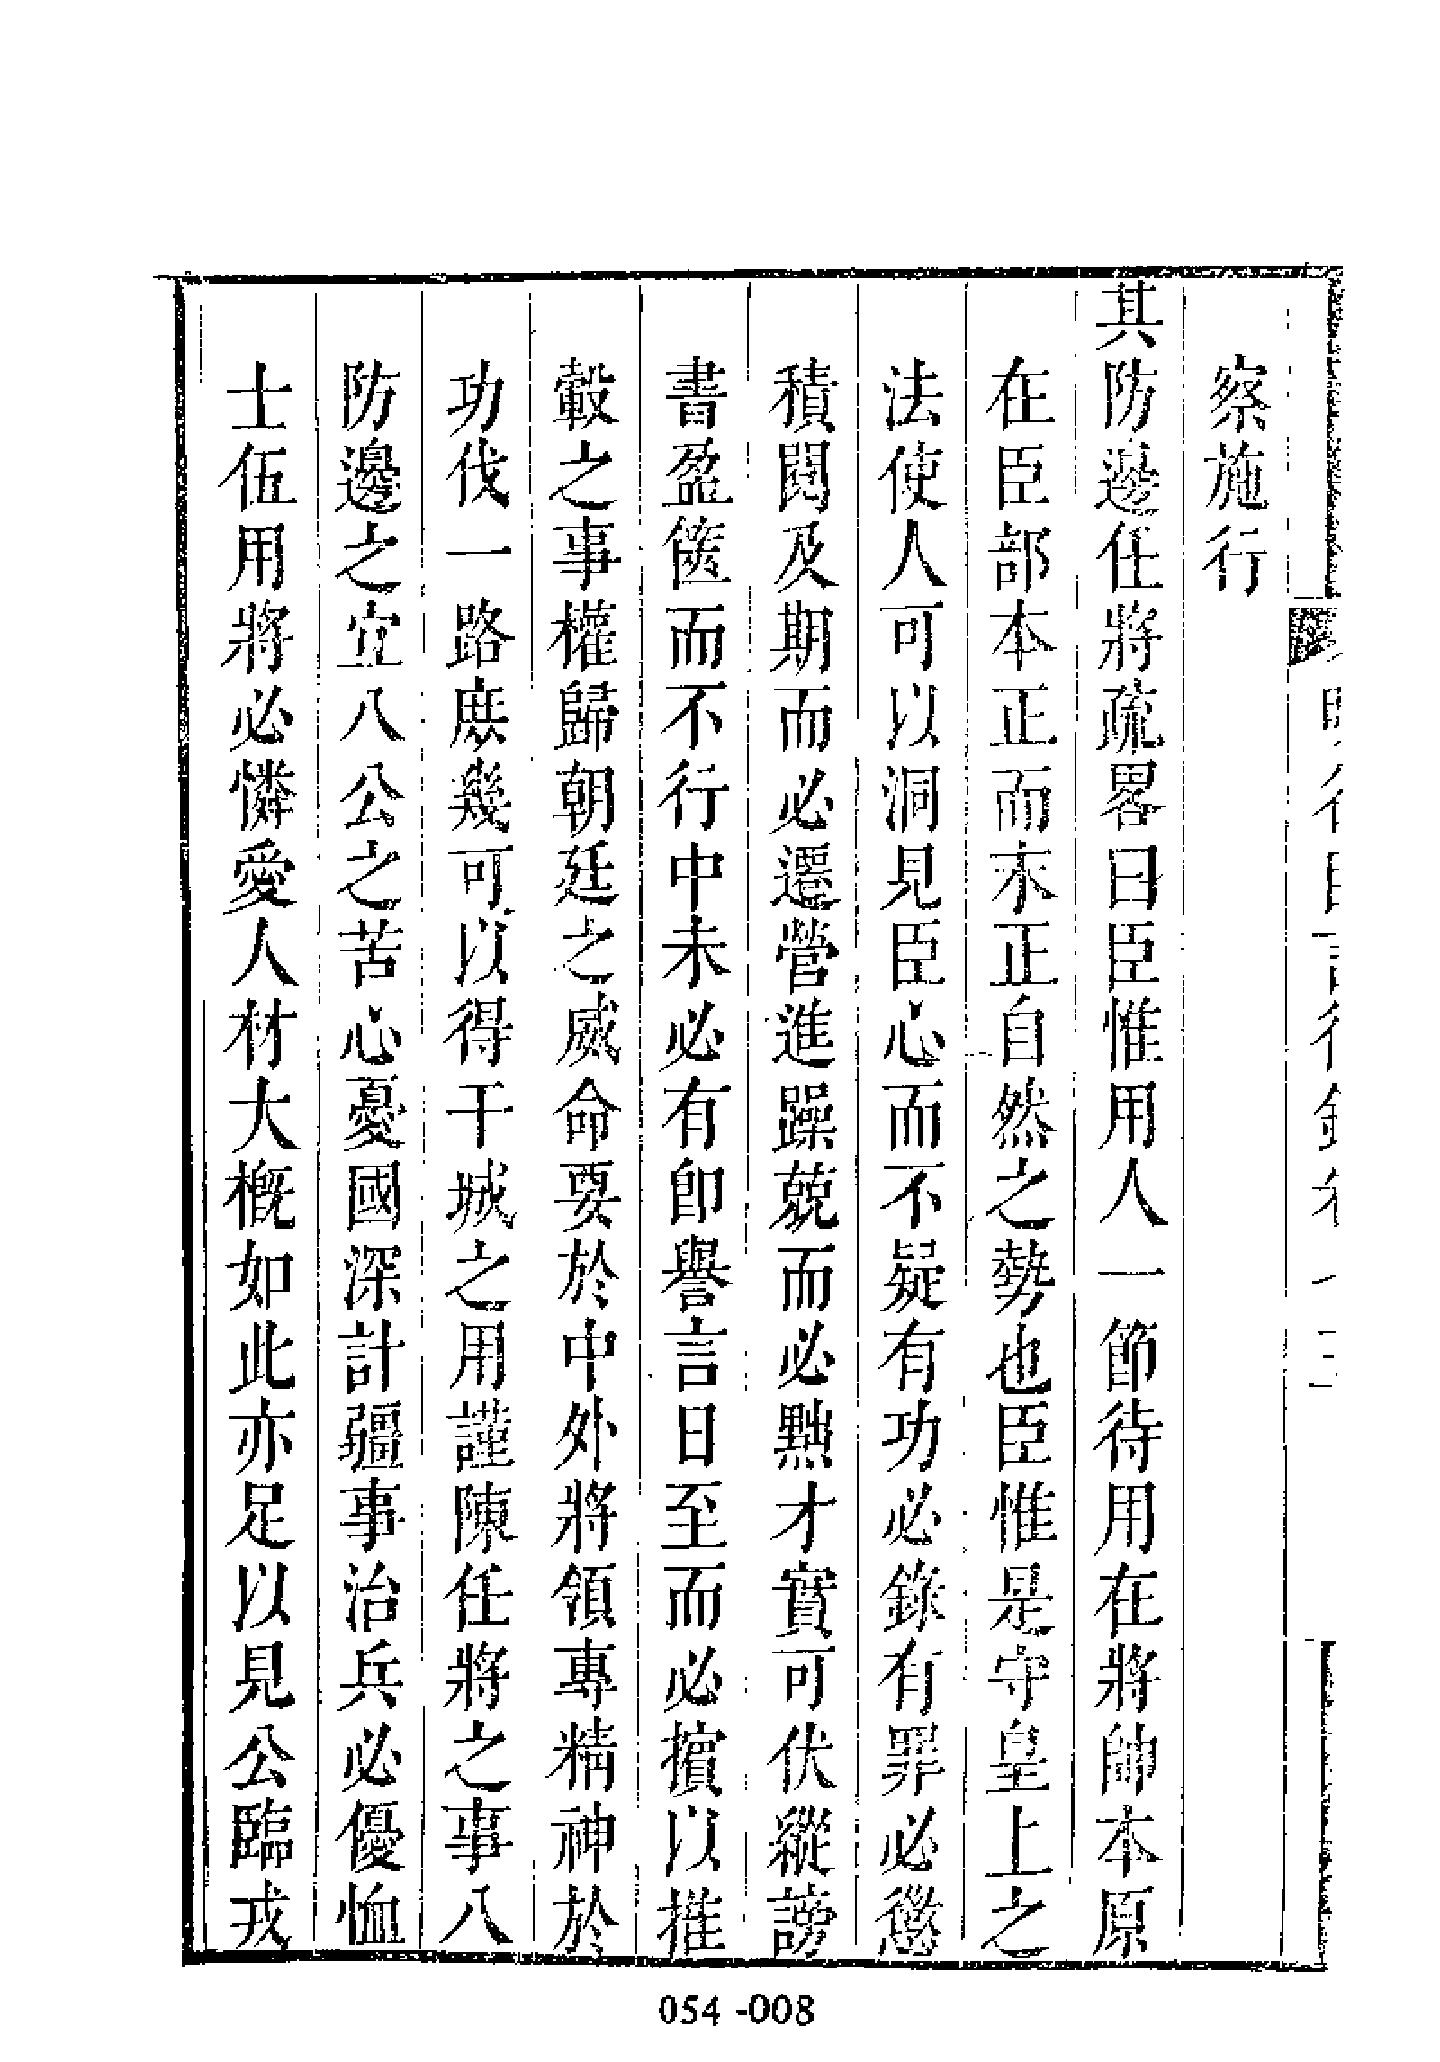 察施行
其防邊任將疏畧曰臣惟用人一節待用在將帥本原
在臣部本正而末正自然之勢也臣惟是守皇上之
法使人可以洞見臣心而不疑有功必錄有罪必懲
積閱及期而必遷營進躁兢而必黜才實可伏縱謗
書盈篋而不行中未必有即譽言日至而必擯以摧
轂之事權歸朝廷之威命要於中外將領專精神於
功伐一路庶幾可以得干城之用謹陳任將之事八
防邊之宜八公之苦心憂國深計疆事治兵必優恤
士伍用將必憐愛人材大概如此亦足以見公臨戎
054-008